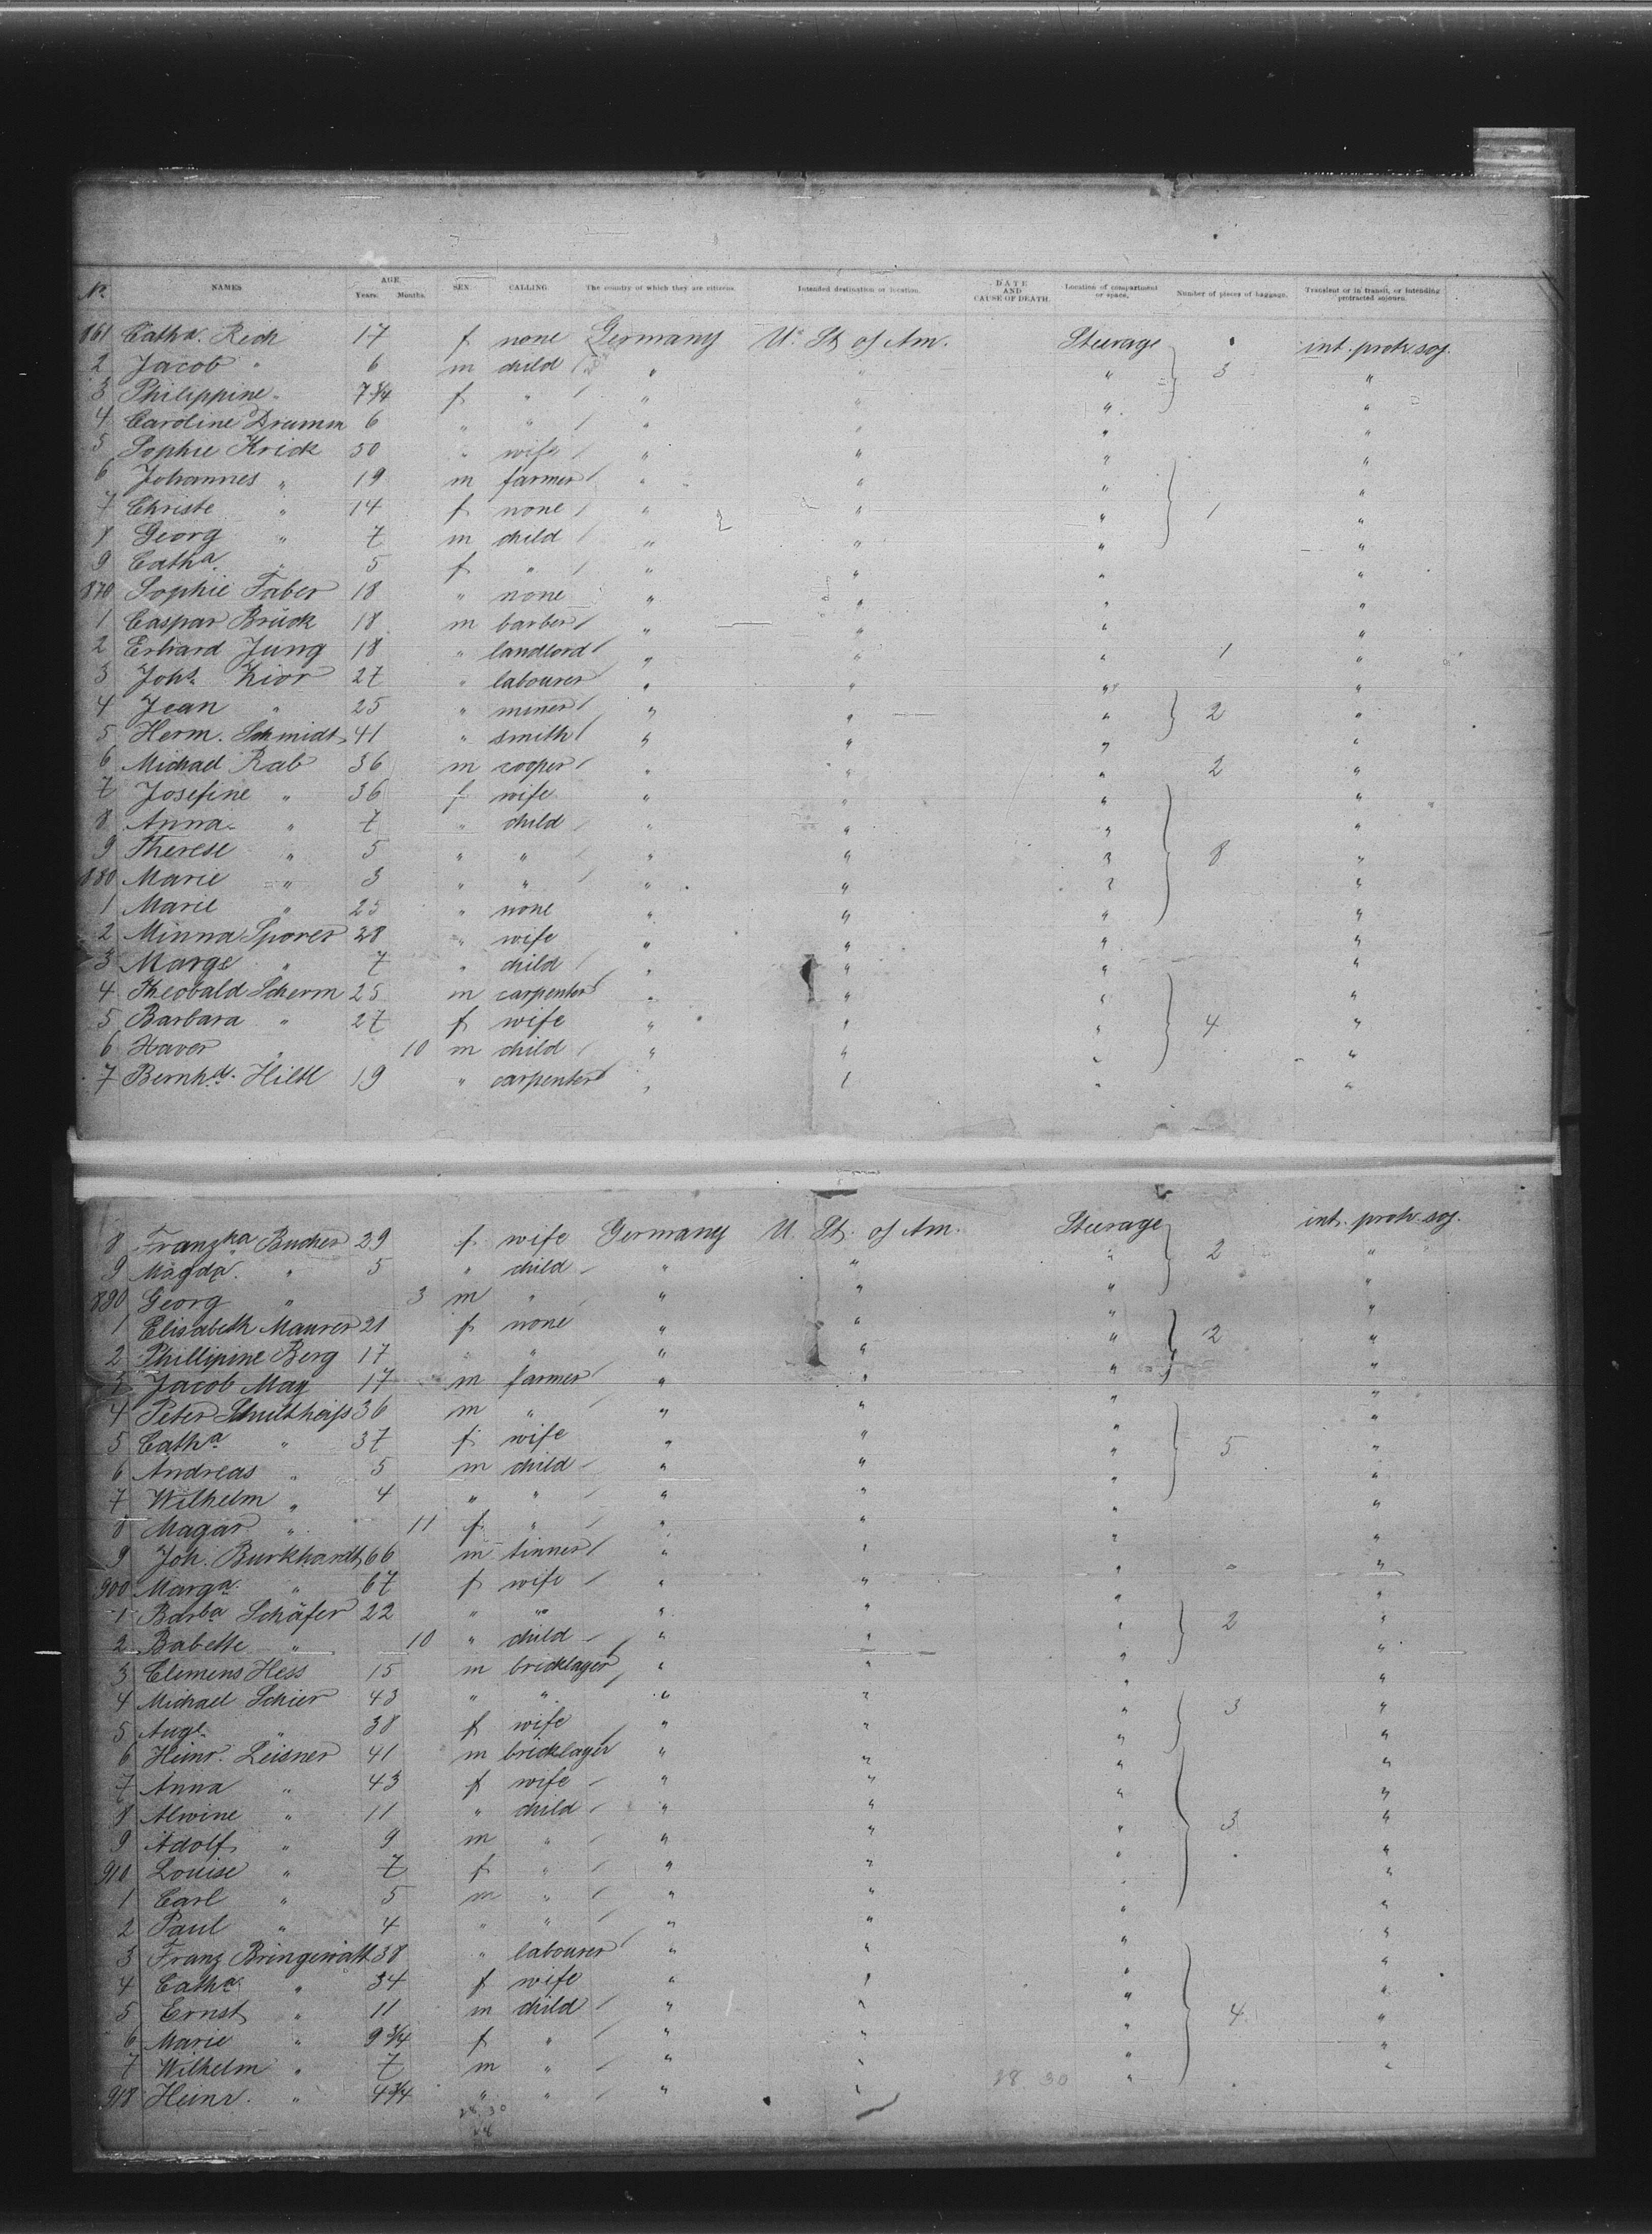 No. NAMES AGE. Years. Months. SEX. CALLING The country of which they are citizens. Intended destination or location. DATE AND CAUSE OF DEATH. Location of compartment or space. Number of pieces of baggage. Transient or in transit, or intending protracted sojourn.
861 Catha. Reck 17 f none Germany U. St. of Am. Steerage int. protr. soj.
2 Jacob " 6 m child " " " 3 "
3 Philippine " 7 3/4 f " " " " "
4 Caroline Drumm 6 " " " " " "
5 Sophie Krick 50 " wife " " " "
6 Johannes " 19 m farmer " " " "
7 Christe " 14 f none " " " 1 "
8 Georg " 7 m child " " " "
9 Catha " 5 f " " " " "
870 Sophie Faber 18 " none " " " "
1 Caspar Brück 18 m barber " " " "
2 Erhard Jung 18 " landlord " " " 1 "
3 Johs. Kior 27 " labourer " " " "
4 Jean " 25 " miner " " " 2 "
5 Herm. Schmidt 41 " smith " " " "
6 Michael Rab 36 m cooper " " " 2 "
7 Josefine " 36 f wife " " " "
8 Anna " 7 " child " " " "
9 Therese " 5 " " " " " 8 "
880 Marie " 3 " " " " " "
1 Marie " 25 " none " " " "
2 Minna Sporer 28 " wife " " " "
3 Marge " 7 " child " " " "
4 Theobald Scherm 25 m carpenter " " " "
5 Barbara " 27 f wife " " " 4 "
6 Xaver " 10 m child " " " "
7 Bernhd. Hiltl 19 " carpenter " " " "
8 Franzka Bucher 29 f wife Germany U. St. of Am. Steerage int. protr. soj.
9 Magda. " 5 " child " " " 2 "
890 Georg " 3 m " " " " "
1 Elisabeth Maurer 21 f none " " " "
2 Phillipine Berg 17 " " " " " 2 "
3 Jacob May 17 m farmer " " " "
4 Peter Schultheiss 36 m " " " " "
5 Catha " 37 f wife " " " 5 "
6 Andreas " 5 m child " " " "
7 Wilhelm " 4 " " " " " "
8 Magar " 11 f " " " " "
9 Joh. Burkhardt 66 m tinner " " " "
900 Marga. " 67 f wife " " " "
1 Barba Schäfer 22 " " " " " 2 "
2 Babette " 10 " child " " " "
3 Clemens Hess 15 m bricklayer " " " "
4 Michael Schier 43 " " " " " 3 "
5 Auge. " 38 f wife " " " "
6 Heinr. Leisner 41 m bricklayer " " " "
7 Anna " 43 f wife " " " "
8 Alwine " 11 " child " " " 3 "
9 Adolf " 9 m " " " " "
910 Louise " 7 f " " " " "
1 Carl " 5 m " " " " "
2 Paul " 4 " " " " " "
3 Franz Bringewatt 38 " labourer " " " "
4 Catha. " 34 f wife " " " "
5 Ernst " 11 m child " " " 4 "
6 Marie " 9 3/4 f " " " " "
7 Wilhelm " 7 m " " " " "
918 Heinr. " 4 3/4 " " " " "
28 30